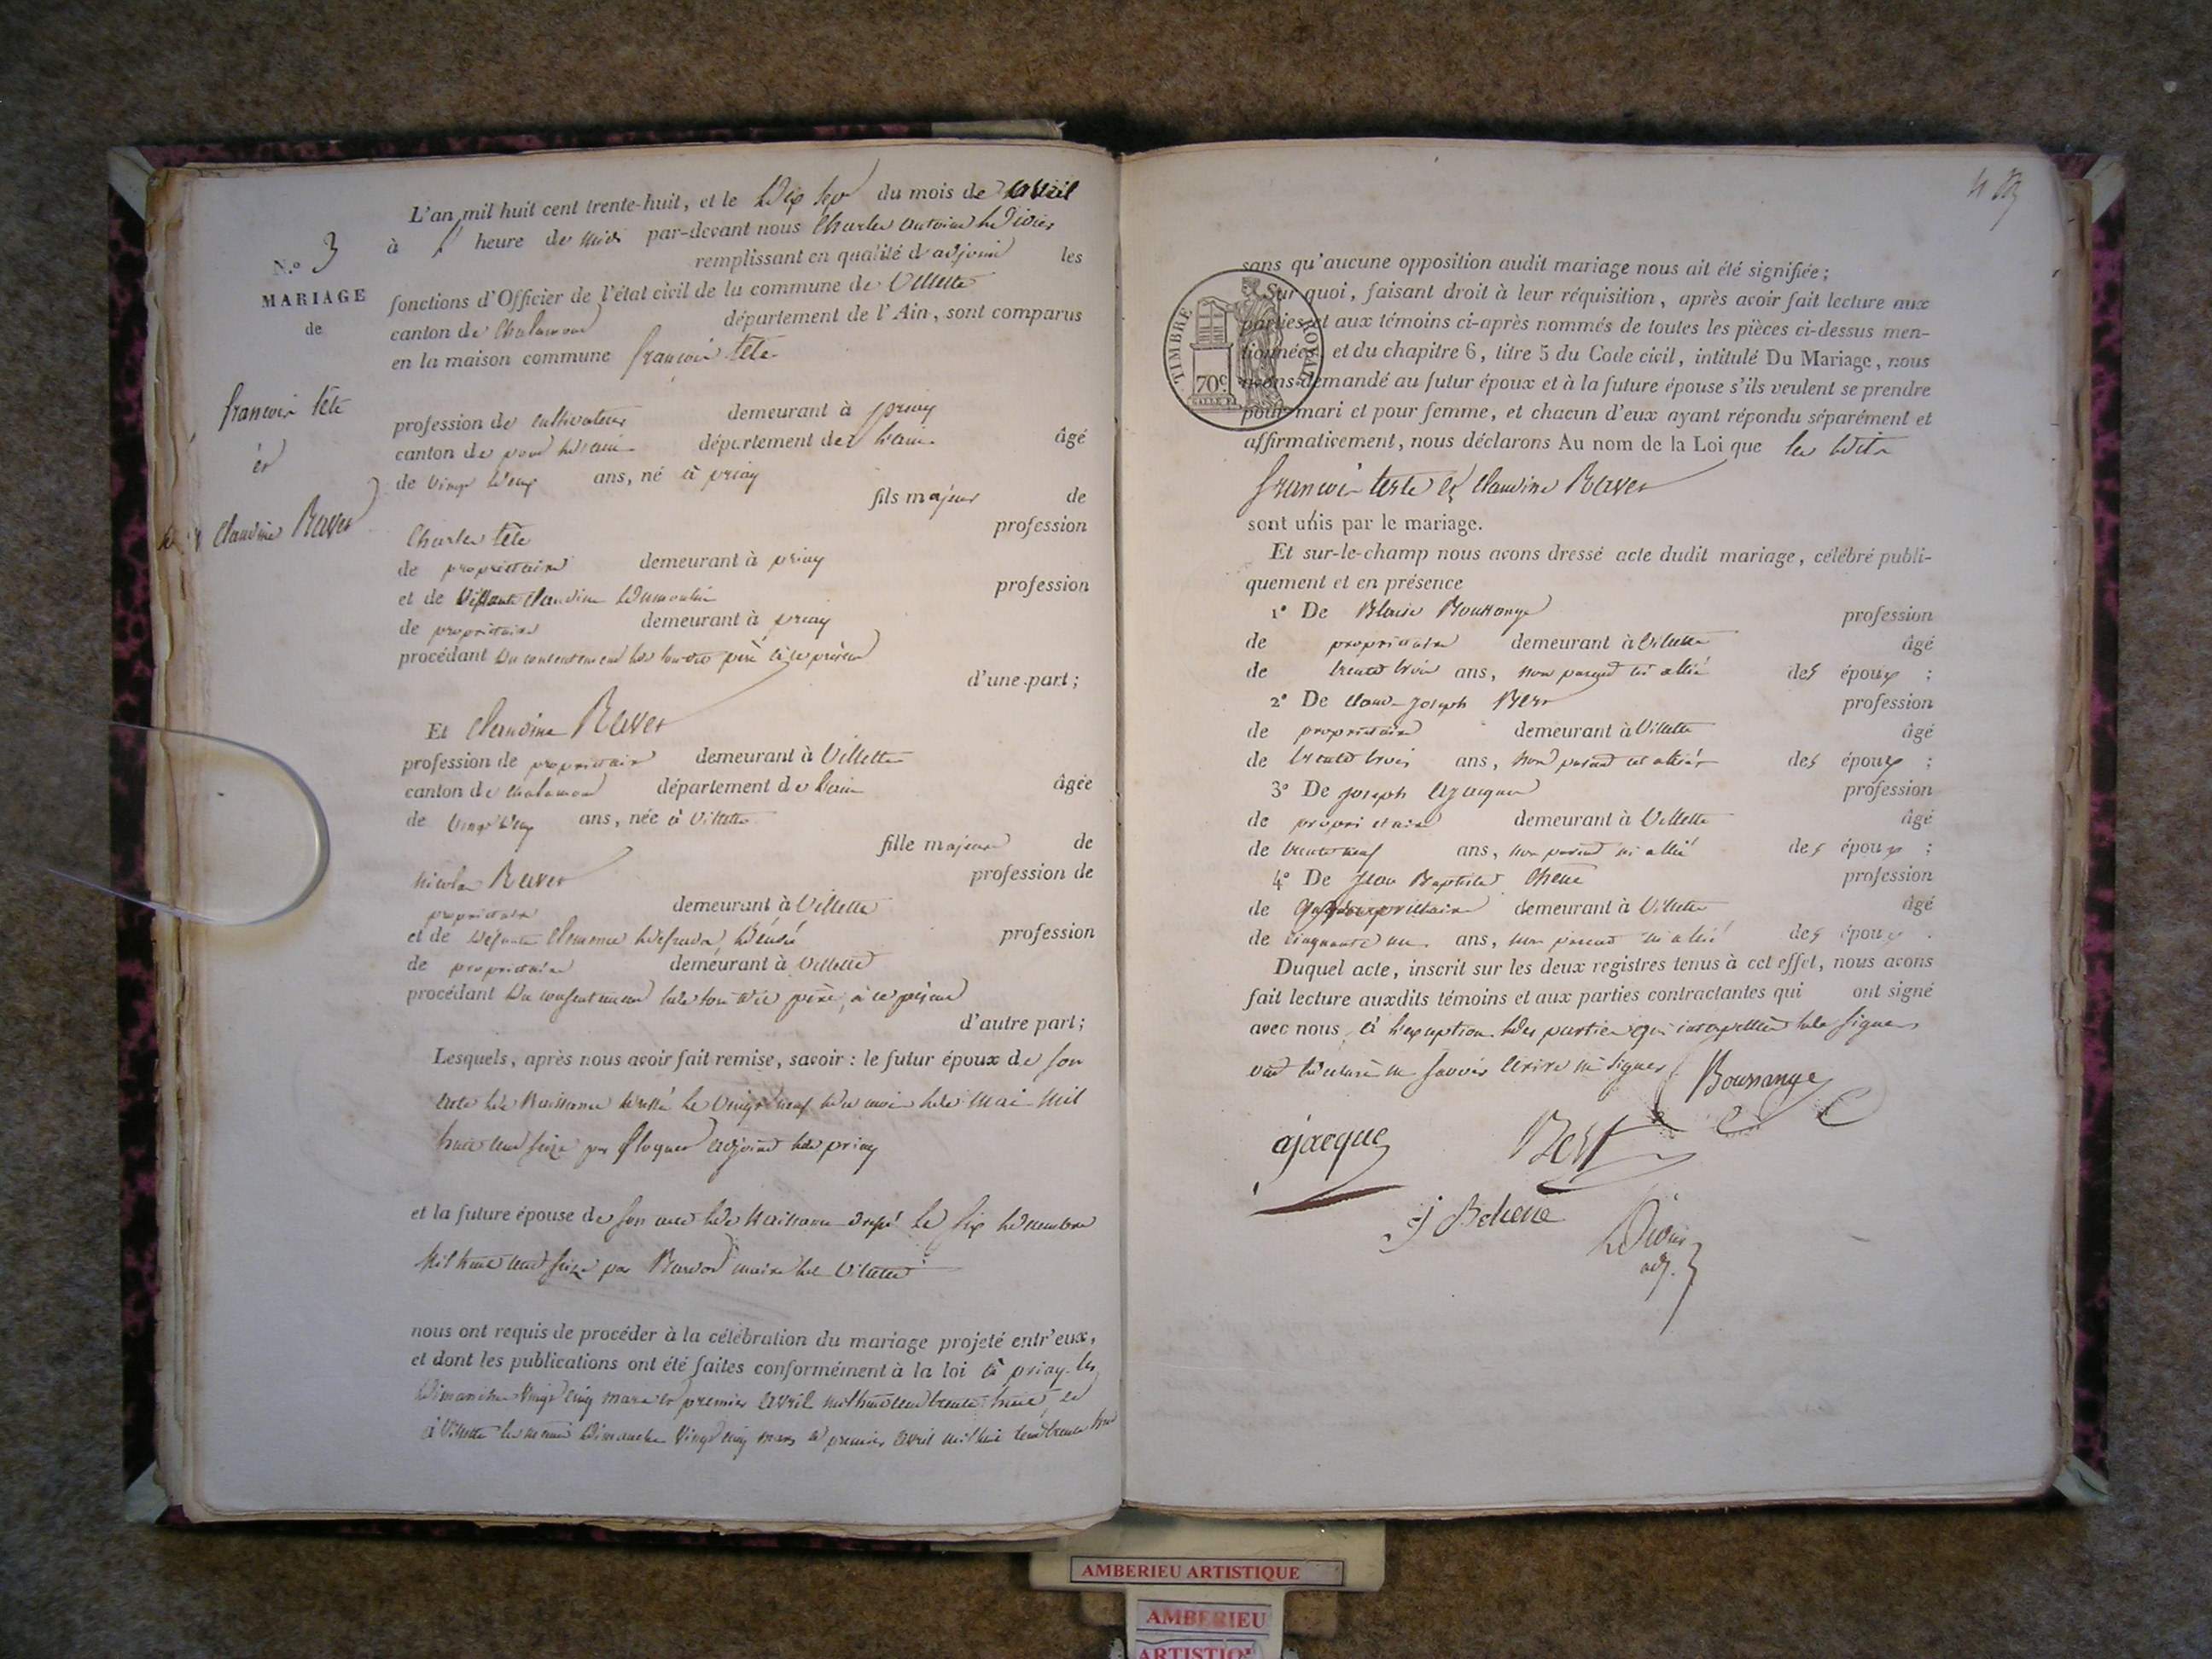 L'an mil huit cent trente-huit, et le Dix sept du mois de avril
N.º 3
à heure de midi par-devant nous Charles antoine
remplissant en qualité d'adjoint les
MARIAGE
fonctions d'Officier de l'état civil de la commune de Villette
de
canton de Chalamont département de l'Ain, sont comparus
en la maison commune francois tête
francois tête
et
Claudine Ravet
profession de cultivateur demeurant à priay
canton de pont d'ain département de l'ain âgé
de vingt deux ans, né à priay
fils majeur de
Charles tête profession
de propriétaire demeurant à priay
et de Claudine Dumoulin profession
de propriétaire demeurant à priay
procédant du consentement de son père à ce présent
d'une part;
Et Claudine Ravet
profession de propriétaire demeurant à Villette
canton de chalamont département de l'ain âgée
de vingt deux ans, née à Villette
fille majeure de
nicolas Ravet profession de
propriétaire demeurant à Villette
et de Défunte profession
de propriétaire demeurant à Villette
procédant du consentement de son père, à ce présent
d'autre part;
Lesquels, après nous avoir fait remise, savoir : le futur époux de son
acte de Naissance dressé le vingt neuf du mois de mai mil
huit cent seize par adjoint de priay
et la future épouse de son acte de Naissance dressé le six
Mil huit cent seize par maire de Villette
nous ont requis de procéder à la célébration du mariage projeté entr'eux,
et dont les publications ont été faites conformément à la loi à priay les
Dimanches vingt cinq mars et premier avril mil huit cent trente huit, et
à Villette les mêmes Dimanches vingt cinq mars et premier avril mil huit cent trente huit
sans qu'aucune opposition audit mariage nous ait été signifiée;
TIMBRE ROYAL
70c
Sur quoi, faisant droit à leur réquisition, après avoir fait lecture aux
parties et aux témoins ci-après nommés de toutes les pièces ci-dessus men-
tionnées, et du chapitre 6, titre 5 du Code civil, intitulé Du Mariage, nous
avons demandé au futur époux et à la future épouse s'ils veulent se prendre
pour mari et pour femme, et chacun d'eux ayant répondu séparément et
affirmativement, nous déclarons Au nom de la Loi que les dits
francois teste et Claudine Ravet
sont unis par le mariage.
Et sur-le-champ nous avons dressé acte dudit mariage, célébré publi-
quement et en présence
1º De Blaise Boussange profession
de propriétaire demeurant à Villette âgé
de trente trois ans, non parent ni allié des époux ;
2º De Claude Joseph Best profession
de propriétaire demeurant à Villette âgé
de trente trois ans, non parent ni allié des époux ;
3º De Joseph profession
de propriétaire demeurant à Villette âgé
de trente neuf ans, non parent ni allié des époux ;
4º De Jean Baptiste Chene profession
de propriétaire demeurant à Villette âgé
de cinquante un ans, non parent ni allié des époux
Duquel acte, inscrit sur les deux registres tenus à cet effet, nous avons
fait lecture auxdits témoins et aux parties contractantes qui ont signé
avec nous, à l'exception des parties qui interpellées de signer
ont déclaré ne savoir écrire ni signer
Boussange
ajacque
Best
J B chene
adj.
AMBERIEU ARTISTIQUE
AMBERIEU